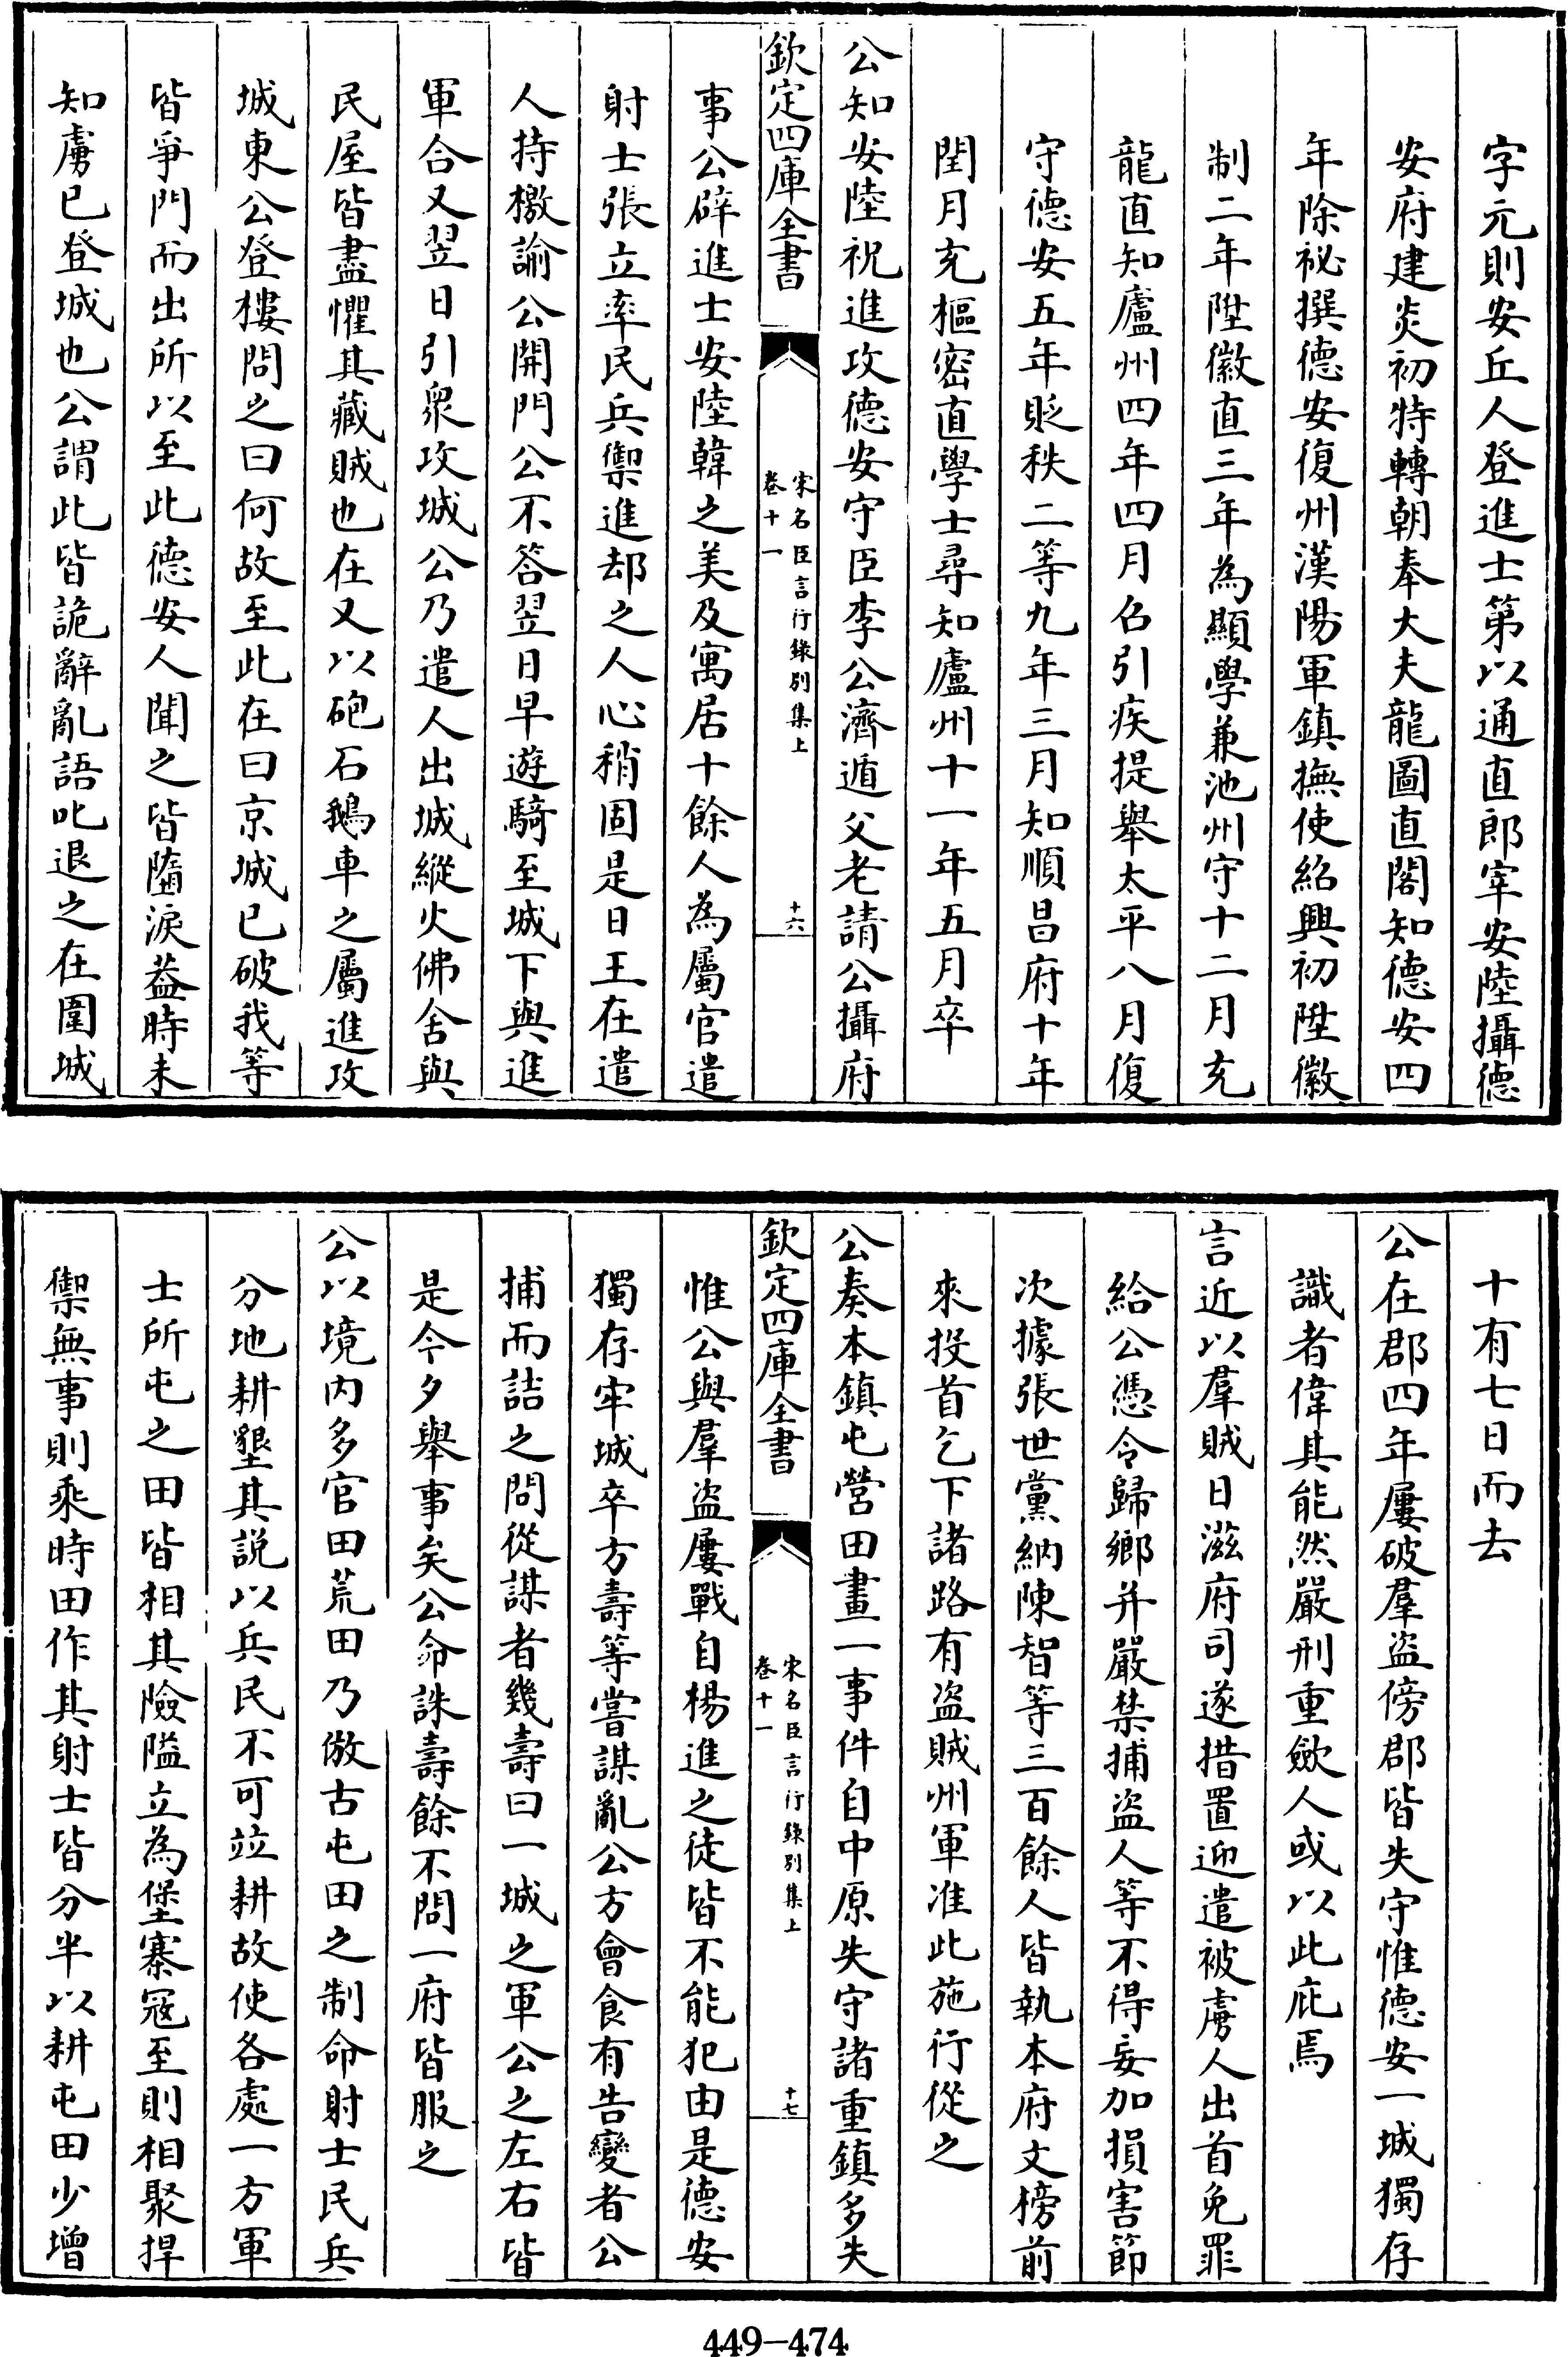 字元則安丘人登進士第以通直郎宰安陸攝德
安府建炎初特轉朝奉大夫龍圖直閣知德安四
年除祕撰德安復州漢陽軍鎮撫使紹興初陞徽
制二年陞徽直三年為顯學兼池州守十二月充
龍直知廬州四年四月召引疾提舉太平八月復
守德安五年貶秩二等九年三月知順昌府十年
閏月充樞密直學士尋知廬州十一年五月卒
公知安陸祝進攻德安守臣李公濟遁父老請公攝府
欽定四庫全書
宋名臣言行錄別集上
卷十一
十六
事公辟進士安陸韓之美及寓居十餘人為屬官遣
射士張立率民兵禦進却之人心稍固是日王在遣
人持檄諭公開門公不答翌日早遊騎至城下與進
軍合又翌日引衆攻城公乃遣人出城縱火佛舍與
民屋皆盡懼其藏賊也在又以砲石鵝車之屬進攻
城東公登樓問之曰何故至此在曰京城已破我等
皆爭門而出所以至此德安人聞之皆墮淚葢時未
知虜已登城也公謂此皆詭辭亂語叱退之在圍城
十有七日而去
公在郡四年屢破羣盜傍郡皆失守惟德安一城獨存
識者偉其能然嚴刑重斂人或以此庇焉
言近以羣賊日滋府司遂措置迎遣被虜人出首免罪
給公憑令歸鄉并嚴禁捕盜人等不得妄加損害節
次據張世黨納陳智等三百餘人皆執本府文榜前
來投首乞下諸路有盜賊州軍准此施行從之
公奏本鎮屯營田畫一事件自中原失守諸重鎮多失
欽定四庫全書
宋名臣言行錄別集上
卷十一
十七
惟公與羣盜屢戰自楊進之徒皆不能犯由是德安
獨存牢城卒方壽等嘗謀亂公方會食有告變者公
捕而詰之問從謀者幾壽曰一城之軍公之左右皆
是今夕舉事矣公命誅壽餘不問一府皆服之
公以境内多官田荒田乃倣古屯田之制命射士民兵
分地耕墾其説以兵民不可竝耕故使各處一方軍
士所屯之田皆相其險隘立為堡寨寇至則相聚捍
禦無事則乘時田作其射士皆分半以耕屯田少增
449-474